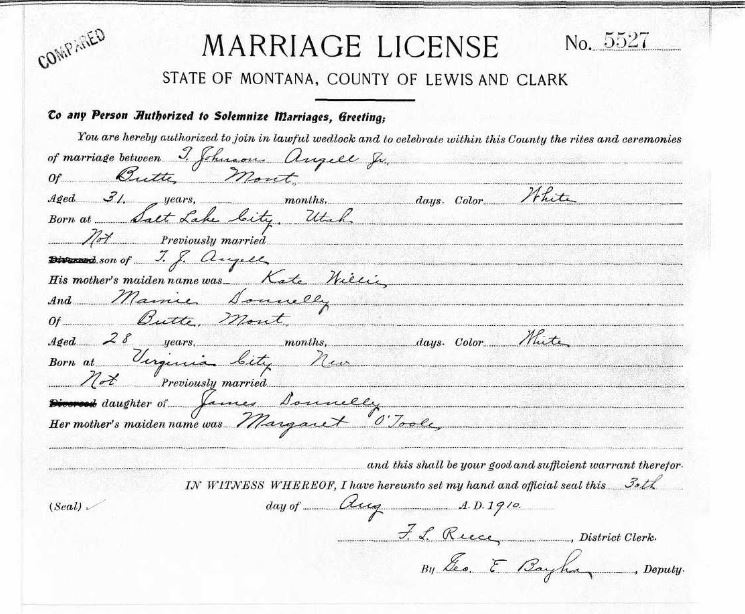 COMPARED
MARRIAGE LICENSE No. 5527
STATE OF MONTANA, COUNTY OF LEWIS AND CLARK
To any Person Authorized to Solemnize Marriages, Greeting;
You are hereby authorized to join in lawful wedlock and to celebrate within this County the rites and ceremonies
of marriage between T. Johnson Angell Jr.
Of Butte, Mont.
Aged 31, years, months, days. Color White
Born at Salt Lake City, Utah
Not Previously married
Divorced son of T. J. Angell
His mother's maiden name was Kate Willis
And Mamie Donnelly
Of Butte, Mont.
Aged 28 years, months, days. Color White
Born at Virginia City Nev
Not Previously married
Divorced daughter of James Donnelly
Her mother's maiden name was Margaret O'Toole
and this shall be your good and sufficient warrant therefor.
IN WITNESS WHEREOF, I have hereunto set my hand and official seal this 30th
(Seal) day of Aug A.D. 1910.
F. L. Reece, District Clerk.
By Geo. E, Deputy.